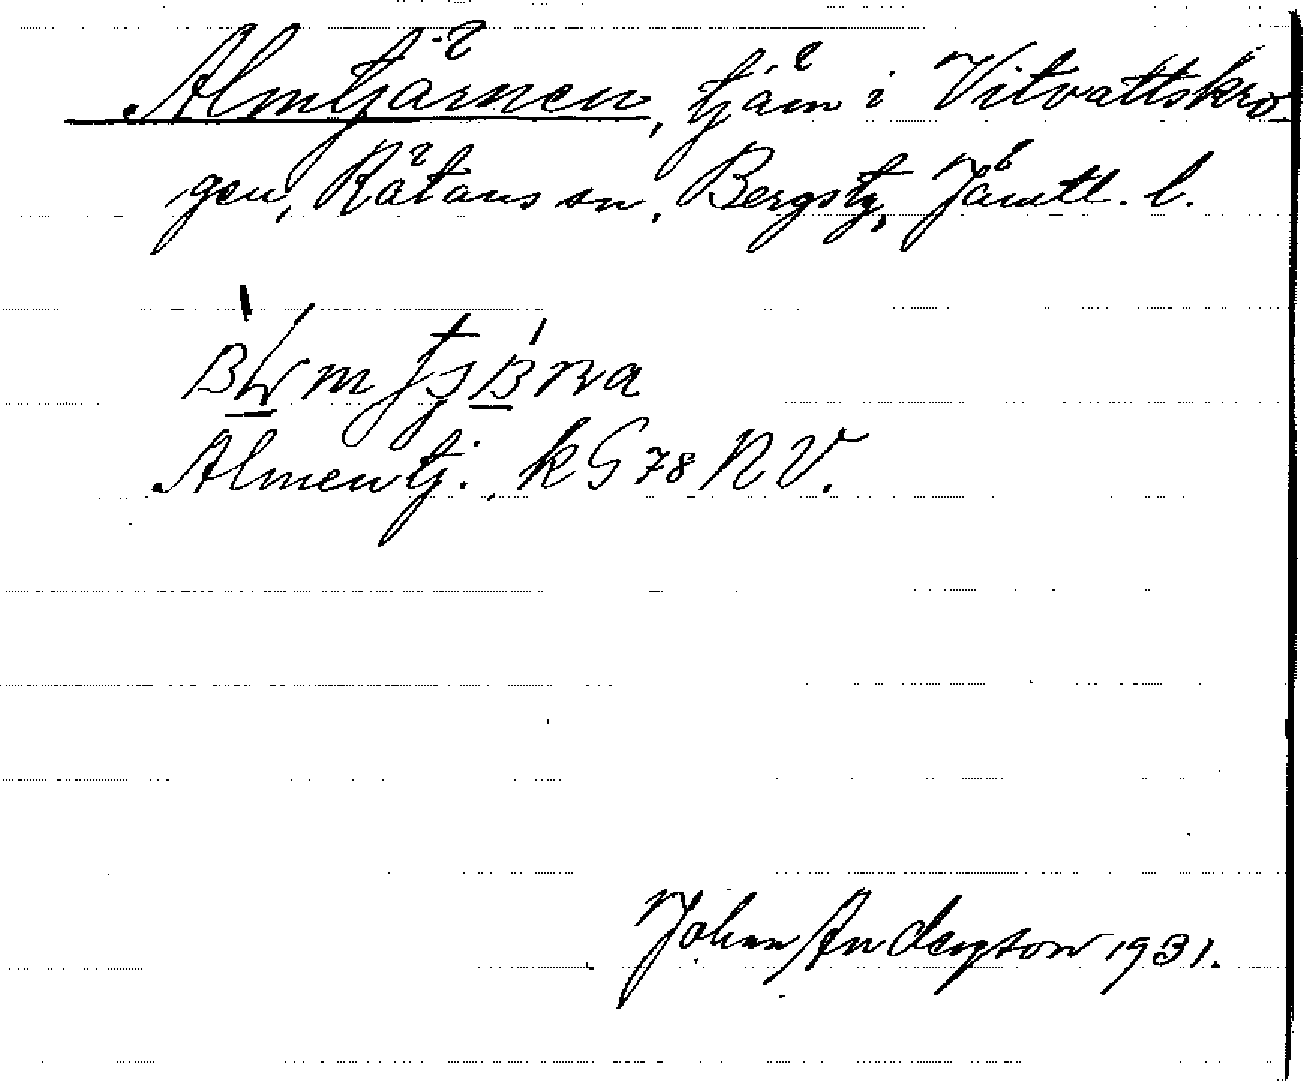 Almtjärnen, tjärn i Vitvattskro-
gen, Rätans sn, Bergs tg, Jämtl. l.
Almentj. kG 78 NV.
Johan Anderzton 1931.